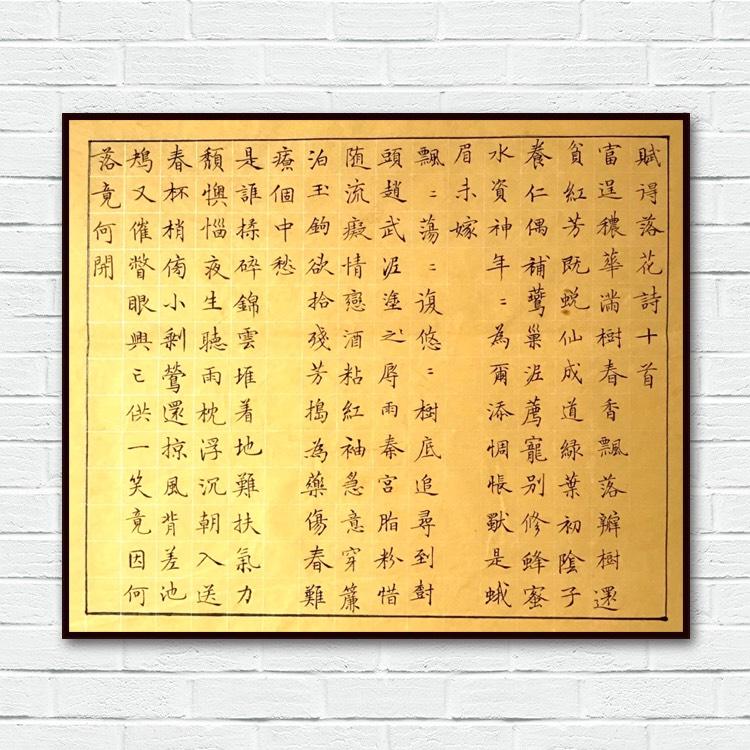 賦得落花詩十首
富逞穠華滿樹春香飄落瓣樹還
貧紅芳既蛻仙成道綠葉初陰子
養仁偶補鶯巢泥薦寵別修蜂蜜
水資神年〻為爾添惆悵獸是蛾
眉未嫁
飄〻蕩〻復悠〻樹底追尋到尌
頭趙武泥塗之辱雨秦宮脂粉惜
随流癡情戀酒粘紅袖急意穿簾
泊玉鉤欲拾殘芳搗為藥傷春難
療個中愁
是誰揉碎錦雲堆着地難扶氣力
頹懊惱夜生聽雨枕浮沉朝入送
春杯梢傍小剩鶯還掠風背差池
鳦又催瞥眼興亡供一笑竟因何
落竟何開